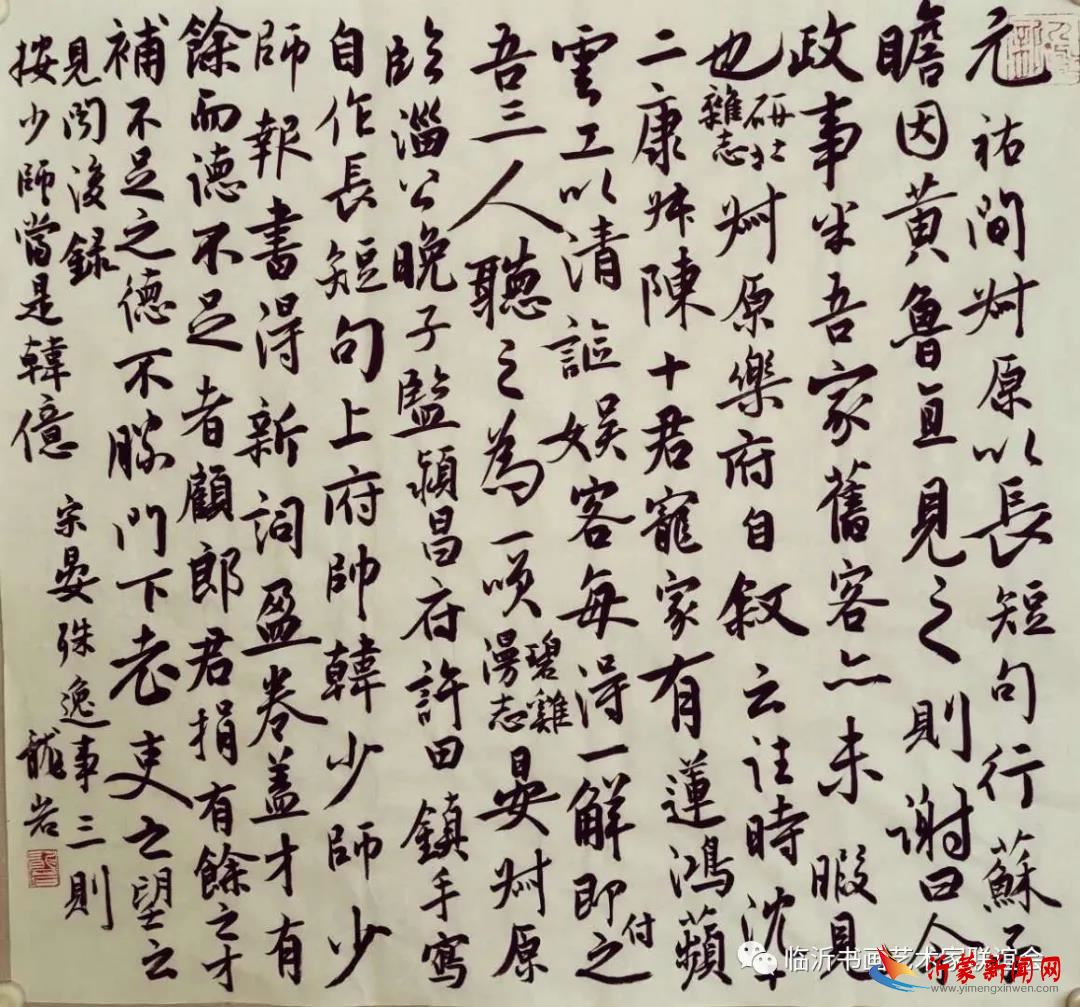 元祐間叔原以長短句行蘇子
瞻因黃魯直見之則謝曰今
政事半吾家舊客亦未暇見
也研北雜志叔原樂府自敘云往時沈十
二康叔陳十君寵家有蓮鴻蘋
雲工以清謳娛客每得一解即付之
吾三人聽之為一笑碧雞漫志晏叔原
臨淄公晚子監潁昌府許田鎮手寫
自作長短句上府帥韓少師少
師報書得新詞盈卷蓋才有
餘而德不足者願郎君捐有餘之才
補不足之德不勝門下老吏之望云
見聞後錄
按少師當是韓億
宋晏殊逸事三則
龍岩
临沂书画艺术家联谊会
沂蒙新闻网
www.yimengxinwen.com